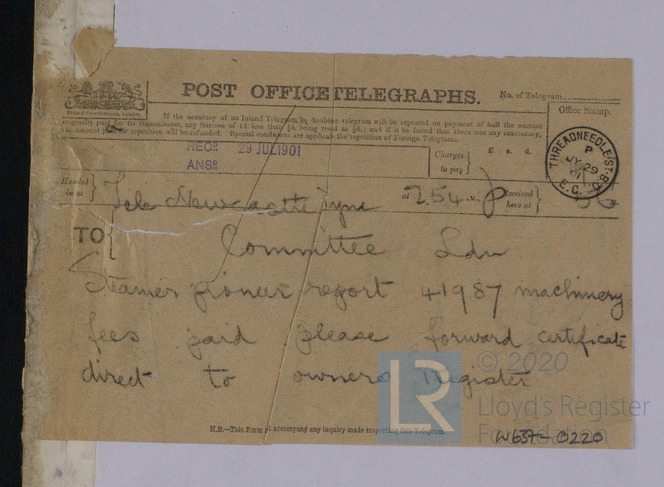 POST OFFICE TELEGRAPHS.
No. of Telegram
If the accuracy of an Inland Telegram be doubted the telegram will be repeated on payment of half the amount
originally paid for its transmission, any fractions of 1d. less than ½d. being reckoned as ½d.; and if it be found that there was any inaccuracy,
the amount paid for repetition will be refunded. Special conditions are applicable to the repetition of Foreign Telegrams.
Office Stamp.
RECD 29 JUL 1901
ANSD
Charges to pay
£ s. d.
THREADNEEDLE ST. B.O.
P
JY 29
01
E.C.
Handed in at
Newcastle Tyne
at 2.54 p
Received here at
TO
Committee Ldn
Steamer pioneer report 41987 machinery
fees paid please forward certificate
direct to owners Register
N.B.—This Form must accompany any inquiry made respecting this Telegram.
© 2020
LR
Lloyd's Register
Foundation
W637-0220